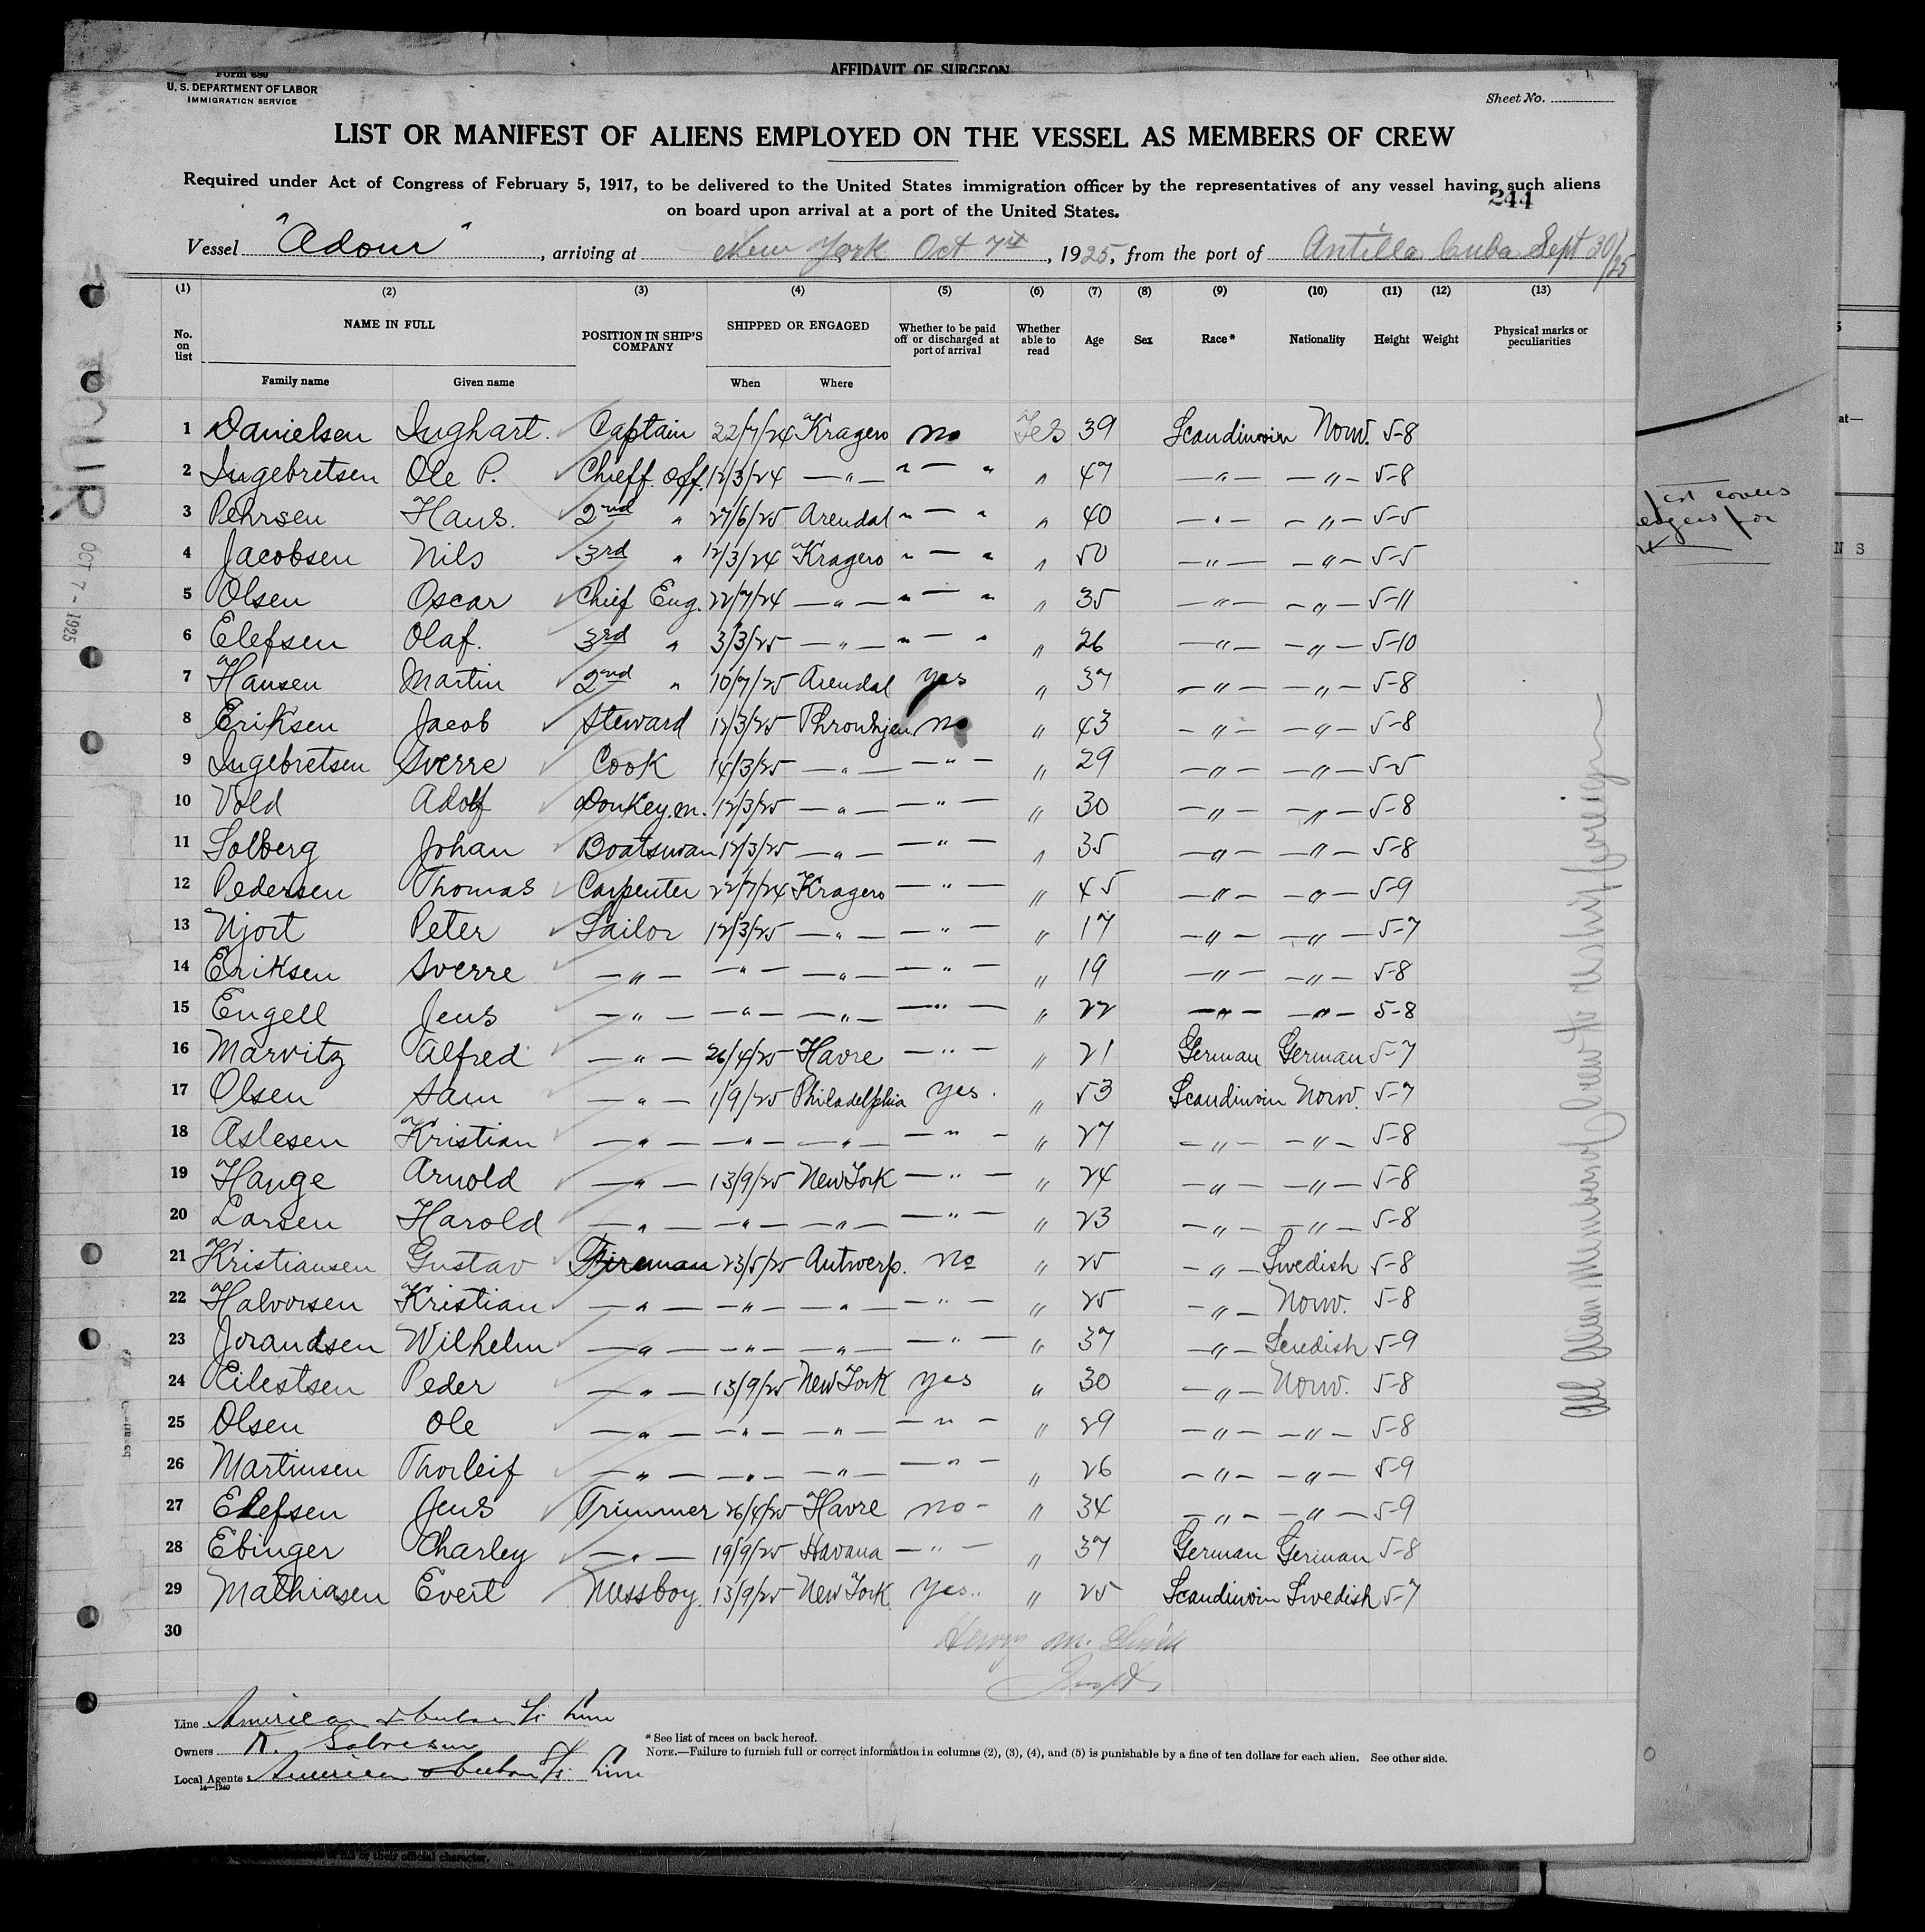 AFFIDAVIT OF SURGEON
Form 680
U. S. DEPARTMENT OF LABOR
IMMIGRATION SERVICE
Sheet No.
LIST OR MANIFEST OF ALIENS EMPLOYED ON THE VESSEL AS MEMBERS OF CREW
Required under Act of Congress of February 5, 1917, to be delivered to the United States immigration officer by the representatives of any vessel having such aliens
on board upon arrival at a port of the United States.
244
Vessel "Adour", arriving at New York Oct 7th, 1925, from the port of Antilla Cuba Sept 30/25
(1) (2) (3) (4) (5) (6) (7) (8) (9) (10) (11) (12) (13)
No. on list NAME IN FULL POSITION IN SHIP'S COMPANY SHIPPED OR ENGAGED Whether to be paid off or discharged at port of arrival Whether able to read Age Sex Race* Nationality Height Weight Physical marks or peculiarities
Family name Given name When Where
1 Danielsen Inghart. Captain 22/7/24 Kragero no Yes 39 Scandinavin Norw. 5-8
2 Ingebretsen Ole P. Chieff. off. 12/3/24 —"— " — " " 47 —"— —"— 5-8
3 Pehrsen Hans. 2nd " 27/6/25 Arendal " — " " 40 —"— —"— 5-5
4 Jacobsen Nils 3rd " 12/3/24 Kragero " — " " 50 —"— —"— 5-5
5 Olsen Oscar Chief Eng. 22/7/24 —"— " — " " 35 —"— —"— 5-11
6 Elefsen Olaf. 3rd " 3/3/25 —"— " — " " 26 —"— —"— 5-10
7 Hansen Martin 2nd " 10/7/25 Arendal yes " 37 —"— —"— 5-8
8 Eriksen Jacob Steward 12/3/25 Throndhjem no " 43 —"— —"— 5-8
9 Ingebretsen Sverre Cook 14/3/25 —"— —"— " 29 —"— —"— 5-5
10 Vold Adolf Donkey.m. 12/3/25 —"— —"— " 30 —"— —"— 5-8
11 Solberg Johan Boatswan 12/3/25 —"— —"— " 35 —"— —"— 5-8
12 Pedersen Thomas Carpenter 22/7/24 Kragero —"— " 45 —"— —"— 5-9
13 Njort Peter Sailor 12/3/25 —"— —"— " 17 —"— —"— 5-7
14 Eriksen Sverre —"— —"— —"— —"— " 19 —"— —"— 5-8
15 Engell Jens —"— —"— —"— —"— " 22 —"— —"— 5-8
16 Marvitz Alfred —"— 26/4/25 Havre —"— " 21 German German 5-7
17 Olsen Sam —"— 1/9/25 Philadelphia yes. " 53 Scandinvin Norw. 5-7
18 Aslesen Kristian —"— —"— —"— —"— " 27 —"— —"— 5-8
19 Hauge Arnold —"— 13/9/25 New York —"— " 24 —"— —"— 5-8
20 Larsen Harold —"— —"— —"— —"— " 23 —"— —"— 5-8
21 Kristiansen Gustav Fireman 23/5/25 Antwerp. no " 25 —"— Swedish 5-8
22 Halvorsen Kristian —"— —"— —"— —"— " 25 —"— Norw. 5-8
23 Jorandsen Wilhelm —"— —"— —"— —"— " 37 —"— Swedish 5-9
24 Eilestsen Peder —"— 13/9/25 New York yes " 30 —"— Norw. 5-8
25 Olsen Ole —"— —"— —"— —"— " 29 —"— —"— 5-8
26 Martinsen Thorleif —"— —"— —"— —"— " 26 —"— —"— 5-9
27 Elefsen Jens Trimmer 26/4/25 Havre no - " 34 —"— —"— 5-9
28 Ebinger Charley —"— 19/9/25 Havana —"— " 37 German German 5-8
29 Mathiasen Evert Messboy. 13/9/25 New York yes.. " 25 Scandinvin Swedish 5-7
30
Henry M.
All Alien Members of Crew
OCT 7 - 1925
Line American & Cuban S/S Line
Owners
Local Agents American & Cuban S/S Line
14—1240
* See list of races on back hereof.
NOTE.—Failure to furnish full or correct information in columns (2), (3), (4), and (5) is punishable by a fine of ten dollars for each alien. See other side.